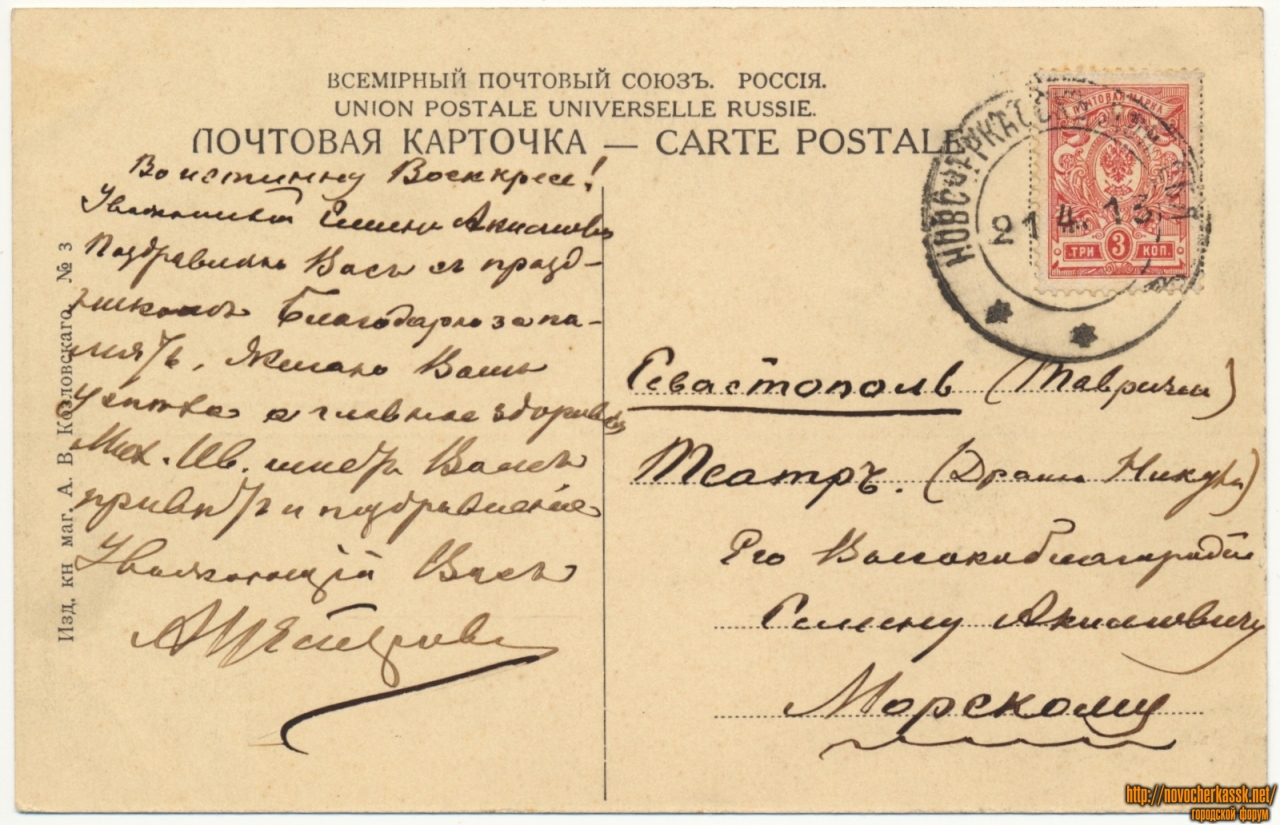 ВСЕМІРНЫЙ ПОЧТОВЫЙ СОЮЗЪ. РОССІЯ.
UNION POSTALE UNIVERSELLE RUSSIE.
ПОЧТОВАЯ КАРТОЧКА — CARTE POSTALE
Воистинну Воскресе!
Уважаемый Семенъ Акимовичъ
Поздравляю Васъ съ празд-
никомъ Благодарю за па-
мять, Желаю Вамъ
успѣха а главное здоровья
Мих. Ив. шлетъ Вамъ
привѣтъ и поздравленіе
Уважающій Васъ
Изд. кн маг. А. В. Козловскаго, № 3
ПОЧТОВАЯ МАРКА
ТРИ 3 КОП.
НОВОЧЕРКАССКЪ
21 4. 13
Севастополь (Таврич.)
Театръ. (Драма)
Его Высокоблагородію
Семену Акимовичу
Морскому
http://novocherkassk.net/
городской форум